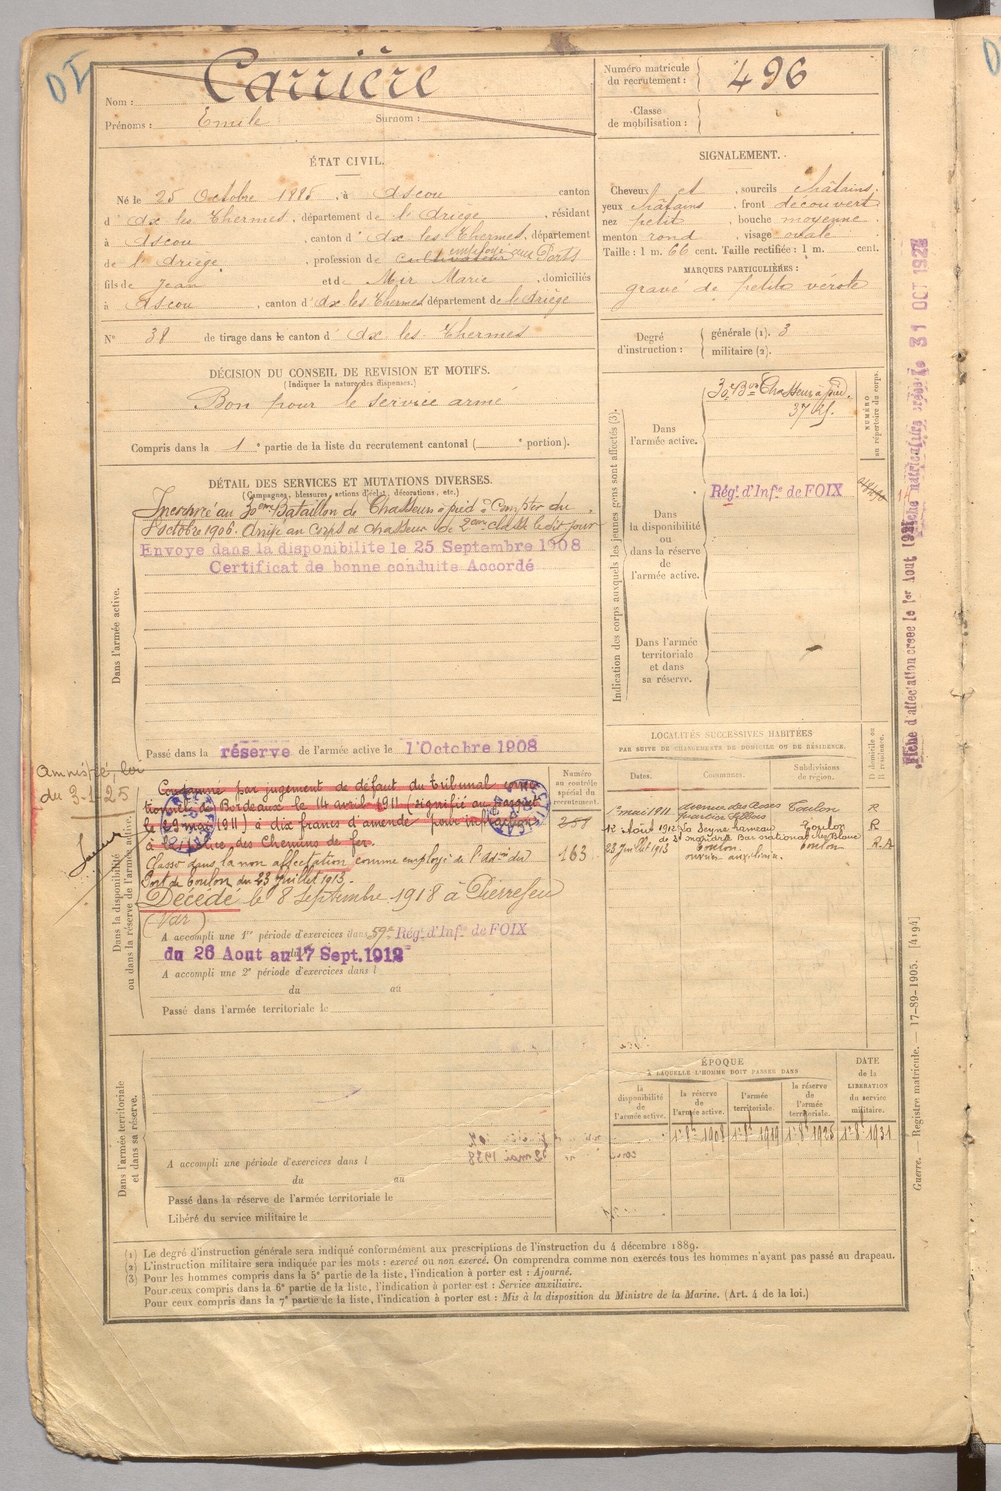 Nom : Carrière
Prénoms : Emile Surnom :
Numéro matricule du recrutement : 496
Classe de mobilisation :
ÉTAT CIVIL.
Né le 25 Octobre 1885, à Ascou canton
d'Ax les Thermes, département de l'Ariège, résidant
à Ascou, canton d'Ax les Thermes, département
de l'Ariège, profession de cultivateur employé aux Ports
fils de Jean et de Mir Marie, domiciliés
à Ascou, canton d'Ax les Thermes département de l'Ariège
N° 38 de tirage dans le canton d'Ax les Thermes
SIGNALEMENT.
Cheveux et, sourcils châtains.
yeux châtains, front découvert
nez petit, bouche moyenne
menton rond, visage ovale
Taille : 1 m. 66 cent. Taille rectifiée : 1 m. cent.
MARQUES PARTICULIÈRES :
gravé de petite vérole
Degré d'instruction : générale (1). 3
militaire (2).
DÉCISION DU CONSEIL DE REVISION ET MOTIFS.
(Indiquer la nature des dispenses.)
Bon pour le service armé
Compris dans la 1e partie de la liste du recrutement cantonal ( e portion).
DÉTAIL DES SERVICES ET MUTATIONS DIVERSES.
(Campagnes, blessures, actions d'éclat, décorations, etc.)
Dans l'armée active.
Incorporé au 30eme Bataillon de Chasseurs à pied à compter du
8 octobre 1906. Arrivé au Corps et chasseur de 2eme classe le dit jour
Envoye dans la disponibilite le 25 Septembre 1908
Certificat de bonne conduite Accordé
Passé dans la réserve de l'armée active le 1 Octobre 1908
Indication des corps auxquels les jeunes gens sont affectés (3).
Dans l'armée active.
30e Bon Chasseurs à pied.
NUMÉRO au répertoire du corps.
Régt. d'Infie de FOIX
Dans la disponibilité ou dans la réserve de l'armée active.
Dans l'armée territoriale et dans sa réserve.
Fiche d'affectation creée le 1er Aout 192
Fiche matriculaire créée le 31 OCT 192
Amnistié, loi
du 3-1-25
Dans la disponibilité ou dans la réserve de l'armée active.
Numéro au contrôle spécial du recrutement.
Condamné par jugement de défaut du tribunal correc
tionnel de Bordeaux le 14 avril 1911 (signifié au parquet
le 29 mai 1911) à dix francs d'amende pour infraction
à la police des Chemins de fer.
Classé dans la non affectation comme employé de l'Admi du
Port de Toulon du 23 juillet 1913.
163
Décédé le 8 Septembre 1918 à Pierrefeu
(Var)
A accompli une 1re période d'exercices dans 59e Régt. d'Infie de FOIX
du 26 Aout au 17 Sept. 1912
A accompli une 2e période d'exercices dans l
du au
Passé dans l'armée territoriale le
LOCALITÉS SUCCESSIVES HABITÉES
PAR SUITE DE CHANGEMENTS DE DOMICILE OU DE RÉSIDENCE.
Dates. Communes. Subdivisions de région. D domicile ou R résidence.
mai 1911 avenue des Roses Toulon R
12 Aout 1912 La Seyne Toulon R
23 Juillet 1913 Toulon Toulon
Dans l'armée territoriale et dans sa réserve.
A accompli une période d'exercices dans l
du au
Passé dans la réserve de l'armée territoriale le
Libéré du service militaire le
ÉPOQUE
À LAQUELLE L'HOMME DOIT PASSER DANS
la disponibilité de l'armée active. la réserve de l'armée active. l'armée territoriale. la réserve de l'armée territoriale. DATE de la LIBÉRATION du service militaire.
Guerre. — Registre matricule. — 17-89-1905. [4194]
(1) Le degré d'instruction générale sera indiqué conformément aux prescriptions de l'instruction du 4 décembre 1889.
(2) L'instruction militaire sera indiquée par les mots : exercé ou non exercé. On comprendra comme non exercés tous les hommes n'ayant pas passé au drapeau.
(3) Pour les hommes compris dans la 5e partie de la liste, l'indication à porter est : Ajourné.
Pour ceux compris dans la 6e partie de la liste, l'indication à porter est : Service auxiliaire.
Pour ceux compris dans la 7e partie de la liste, l'indication à porter est : Mis à la disposition du Ministre de la Marine. (Art. 4 de la loi.)